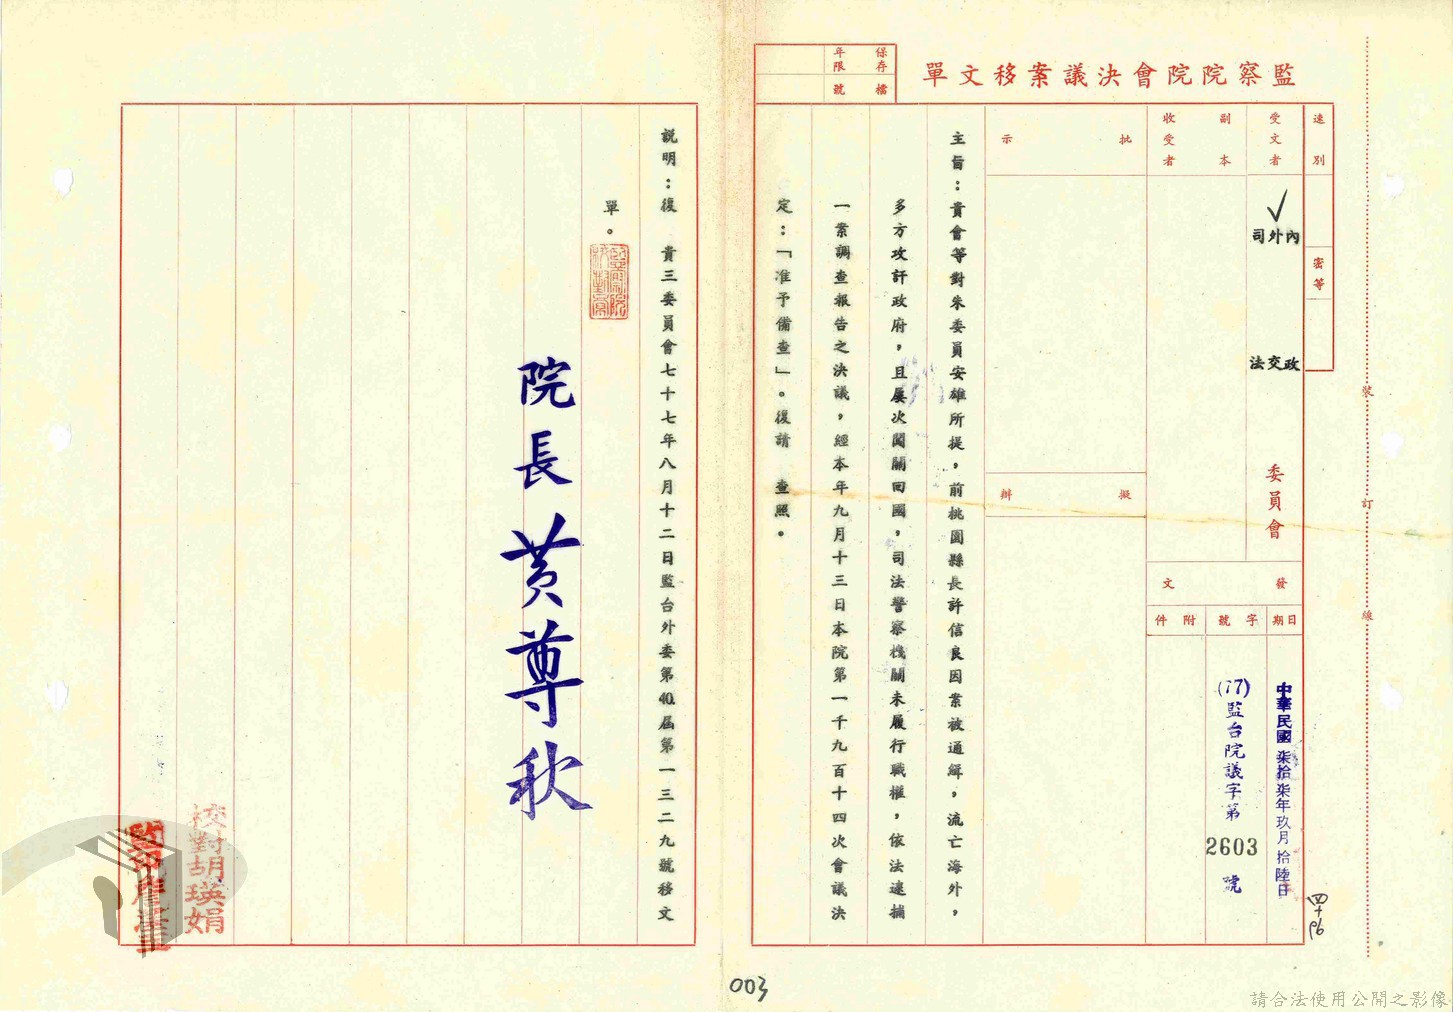 監察院院會決議案移文單
保存年限
檔號
速別
密等
受文者
內外司
政交法
委員會
副本收受者
批示
擬辦
發文
日期
中華民國柒拾柒年玖月拾陸日
字號
(77)監台院議字第2603號
附件
主旨：貴會等對朱委員安雄所提，前桃園縣長許信良因案被通緝，流亡海外，
多方攻訐政府，且屢次闖關回國，司法警察機關未履行職權，依法逮捕
一案調查報告之決議，經本年九月十三日本院第一千九百十四次會議決
定：「准予備查」。復請　查照。
說明：復　貴三委員會七十七年八月十二日監台外委第40屆第一三二九號移文
單。
院長黃尊秋
校對胡瑛娟
裝訂線
003
請合法使用公開之影像